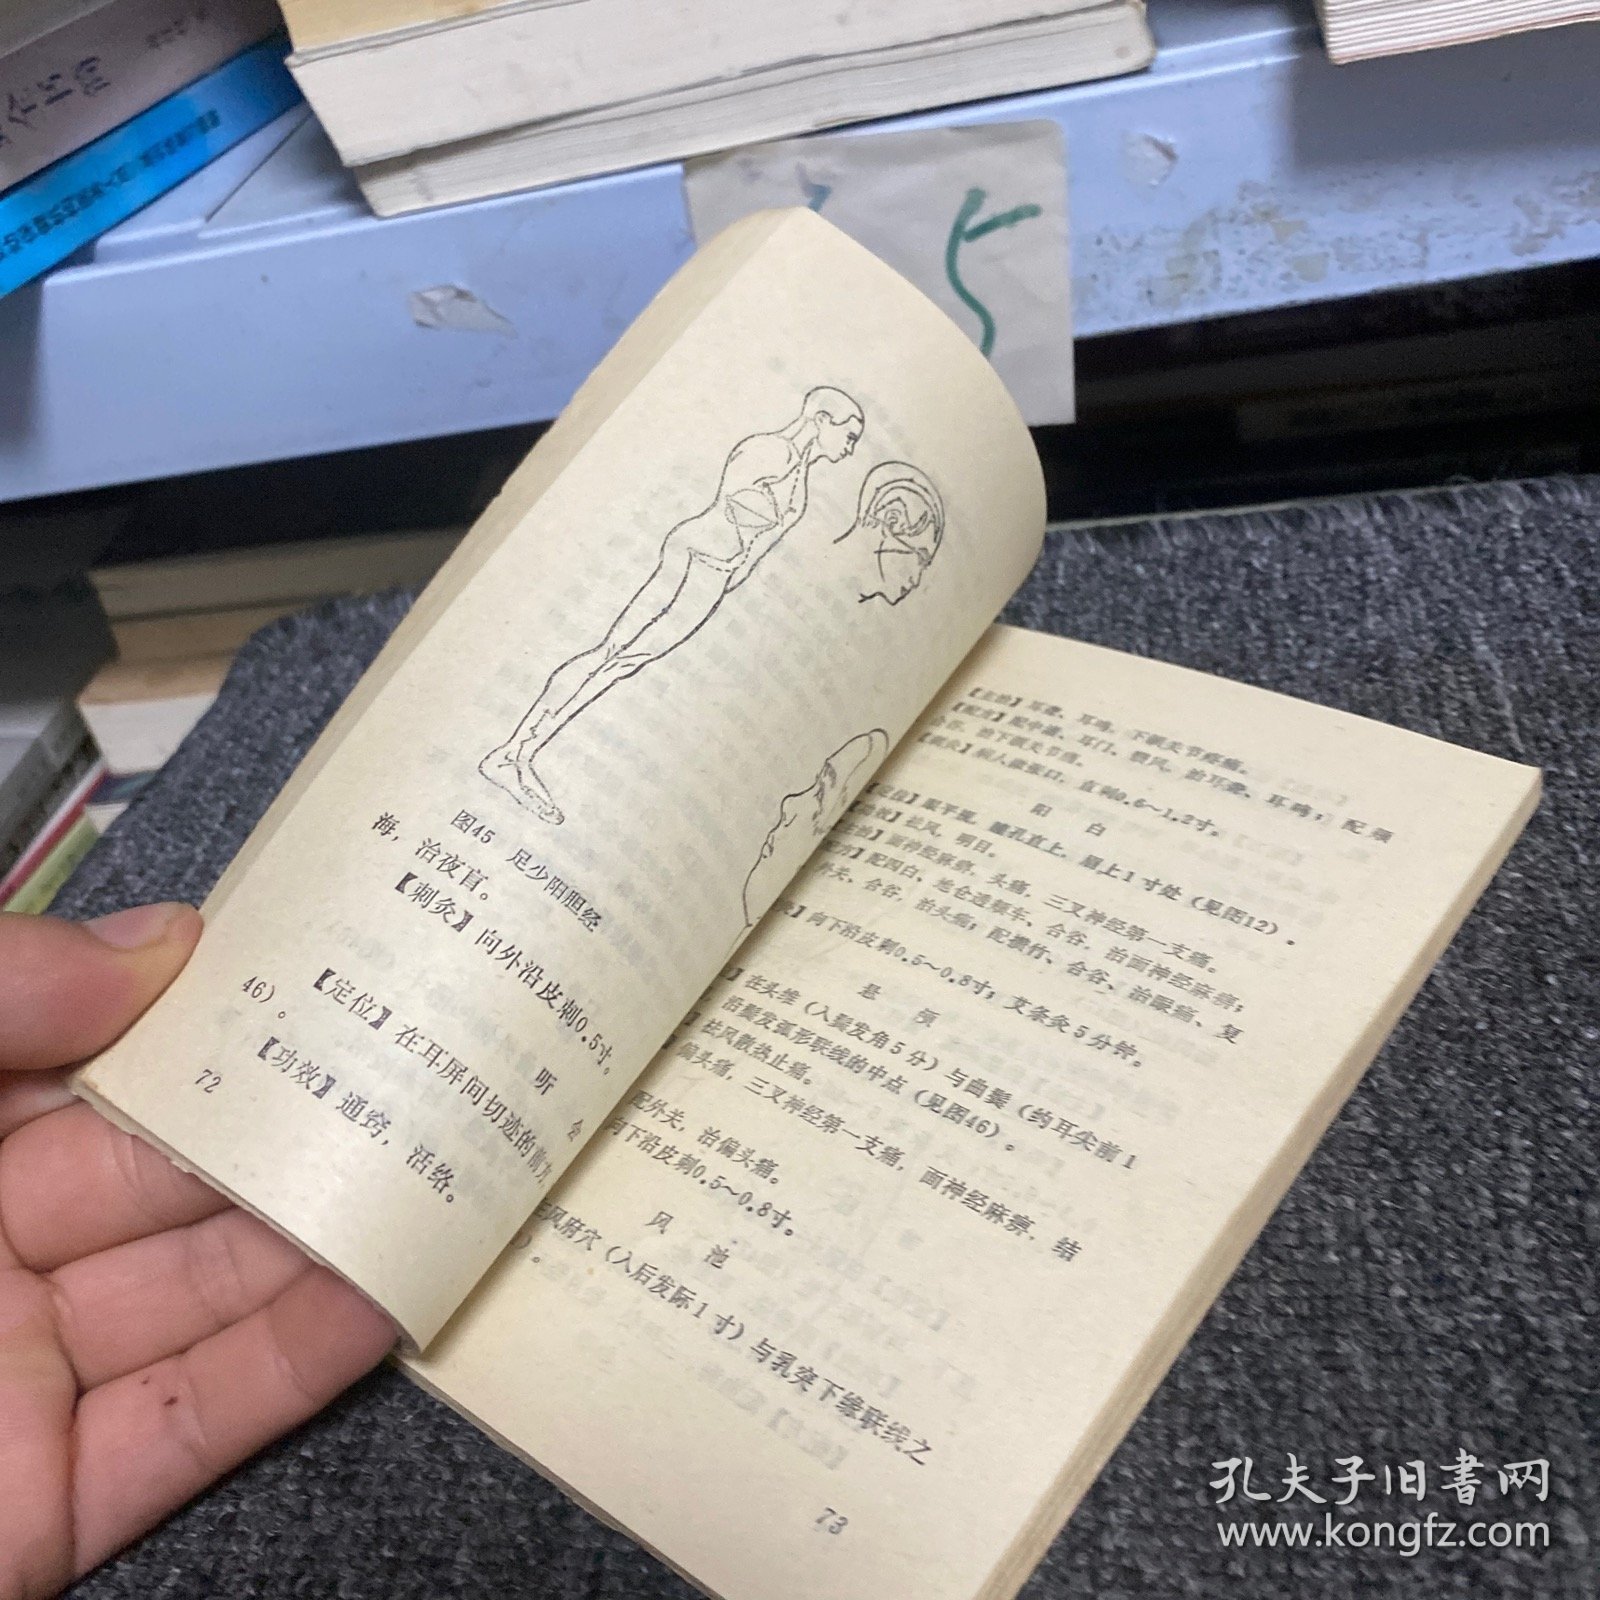 图45 足少阳胆经
海，治夜盲。
【刺灸】向外沿皮刺0.5寸。
听 会
【定位】在耳屏间切迹的前方
46）。
【功效】通窍，活络。
72
【主治】耳聋、耳鸣、下颌关节疼痛。
【配方】配中渚、耳门、翳风，治耳聋、耳鸣；配颊
治下颌关节痛。
病人微张口，直刺0.5～1.2寸。
阳 白
眼平视，瞳孔直上，眉上1寸处（见图12）。
祛风，明目。
面神经麻痹，头痛，三叉神经第一支痛。
配四白、地仓透颊车、合谷，治面神经麻痹；
外关、合谷，治头痛；配攒竹、合谷、治眼痛、复
向下沿皮刺0.5～0.8寸；艾条灸5分钟。
悬 颅
在头维（入鬓发角5分）与曲鬓（约耳尖前1
沿鬓发弧形联线的中点（见图46）。
祛风散热止痛。
偏头痛，三叉神经第一支痛，面神经麻痹，结
配外关，治偏头痛。
向下沿皮刺0.5～0.8寸。
风 池
在风府穴（入后发际1寸）与乳突下缘联线之
）。
73
5
孔夫子旧书网
www.kongfz.com